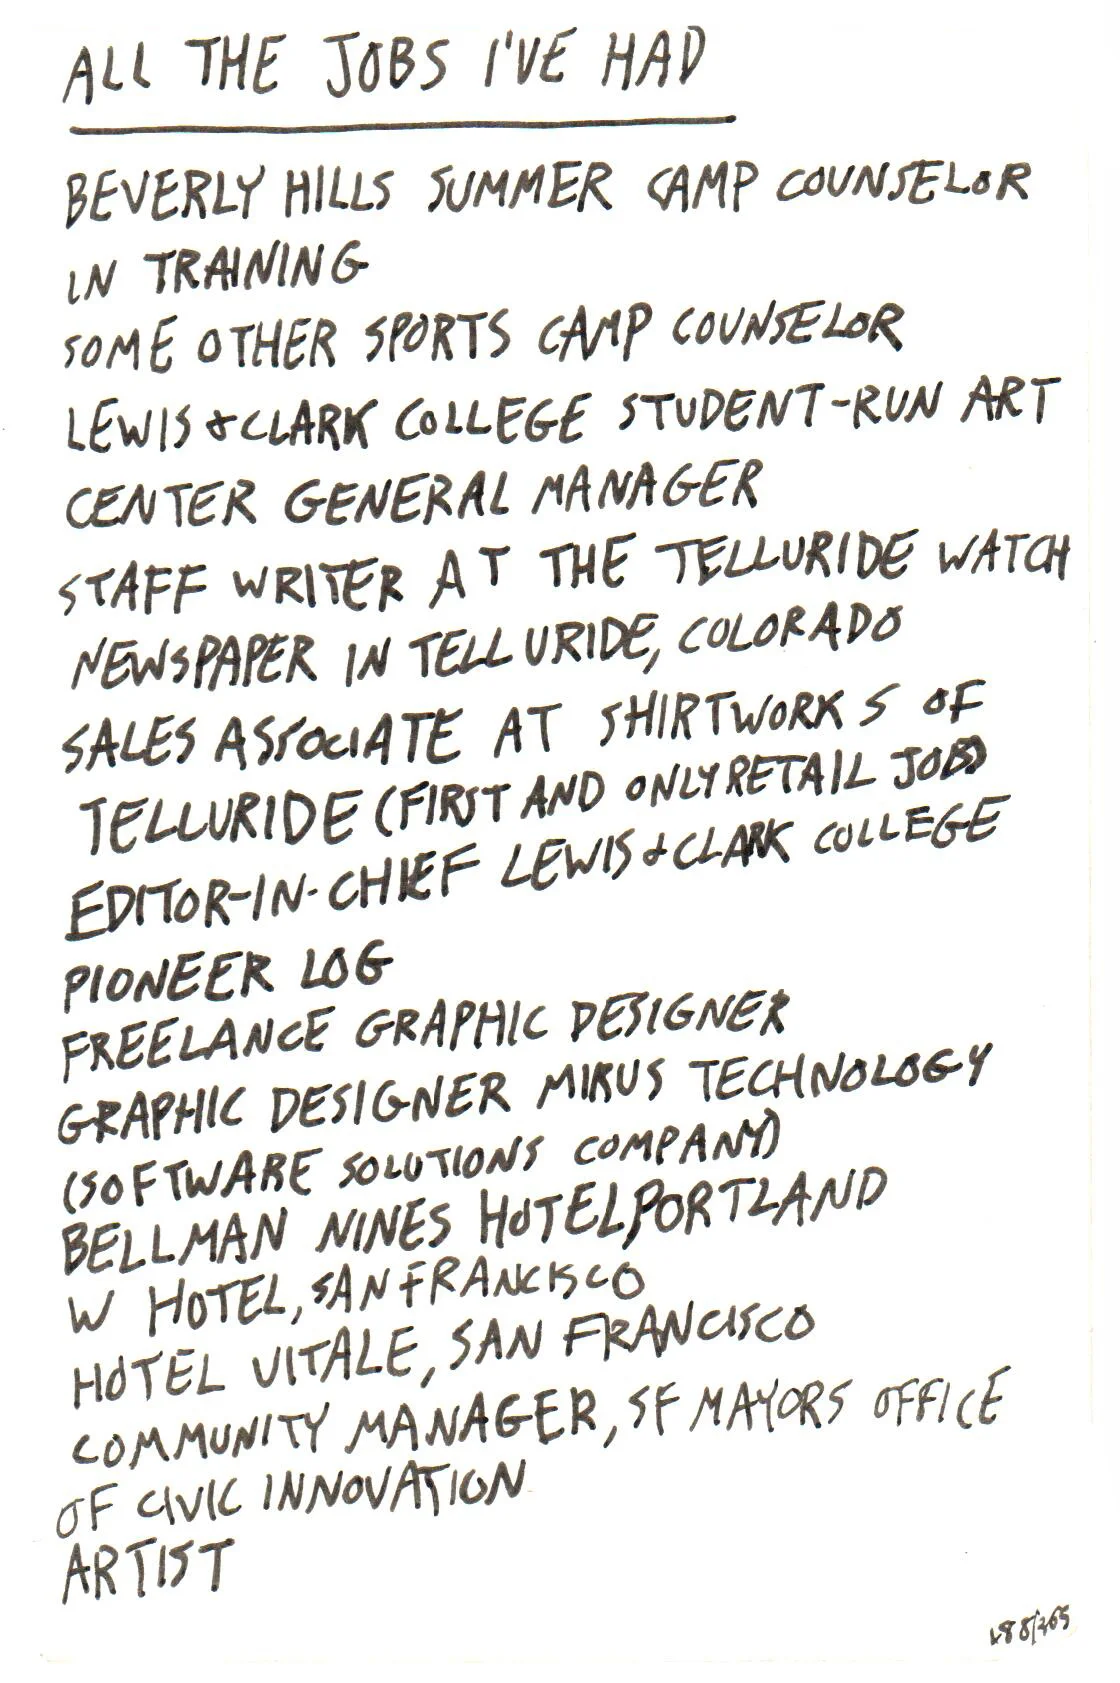 ALL THE JOBS I'VE HAD
BEVERLY HILLS SUMMER CAMP COUNSELOR
IN TRAINING
SOME OTHER SPORTS CAMP COUNSELOR
LEWIS & CLARK COLLEGE STUDENT-RUN ART
CENTER GENERAL MANAGER
STAFF WRITER AT THE TELLURIDE WATCH
NEWSPAPER IN TELLURIDE, COLORADO
SALES ASSOCIATE AT SHIRTWORKS OF
TELLURIDE (FIRST AND ONLY RETAIL JOB)
EDITOR-IN-CHIEF LEWIS & CLARK COLLEGE
PIONEER LOG
FREELANCE GRAPHIC DESIGNER
GRAPHIC DESIGNER MIRUS TECHNOLOGY
(SOFTWARE SOLUTIONS COMPANY)
BELLMAN NINES HOTEL, PORTLAND
W HOTEL, SAN FRANCISCO
HOTEL VITALE, SAN FRANCISCO
COMMUNITY MANAGER, SF MAYORS OFFICE
OF CIVIC INNOVATION
ARTIST